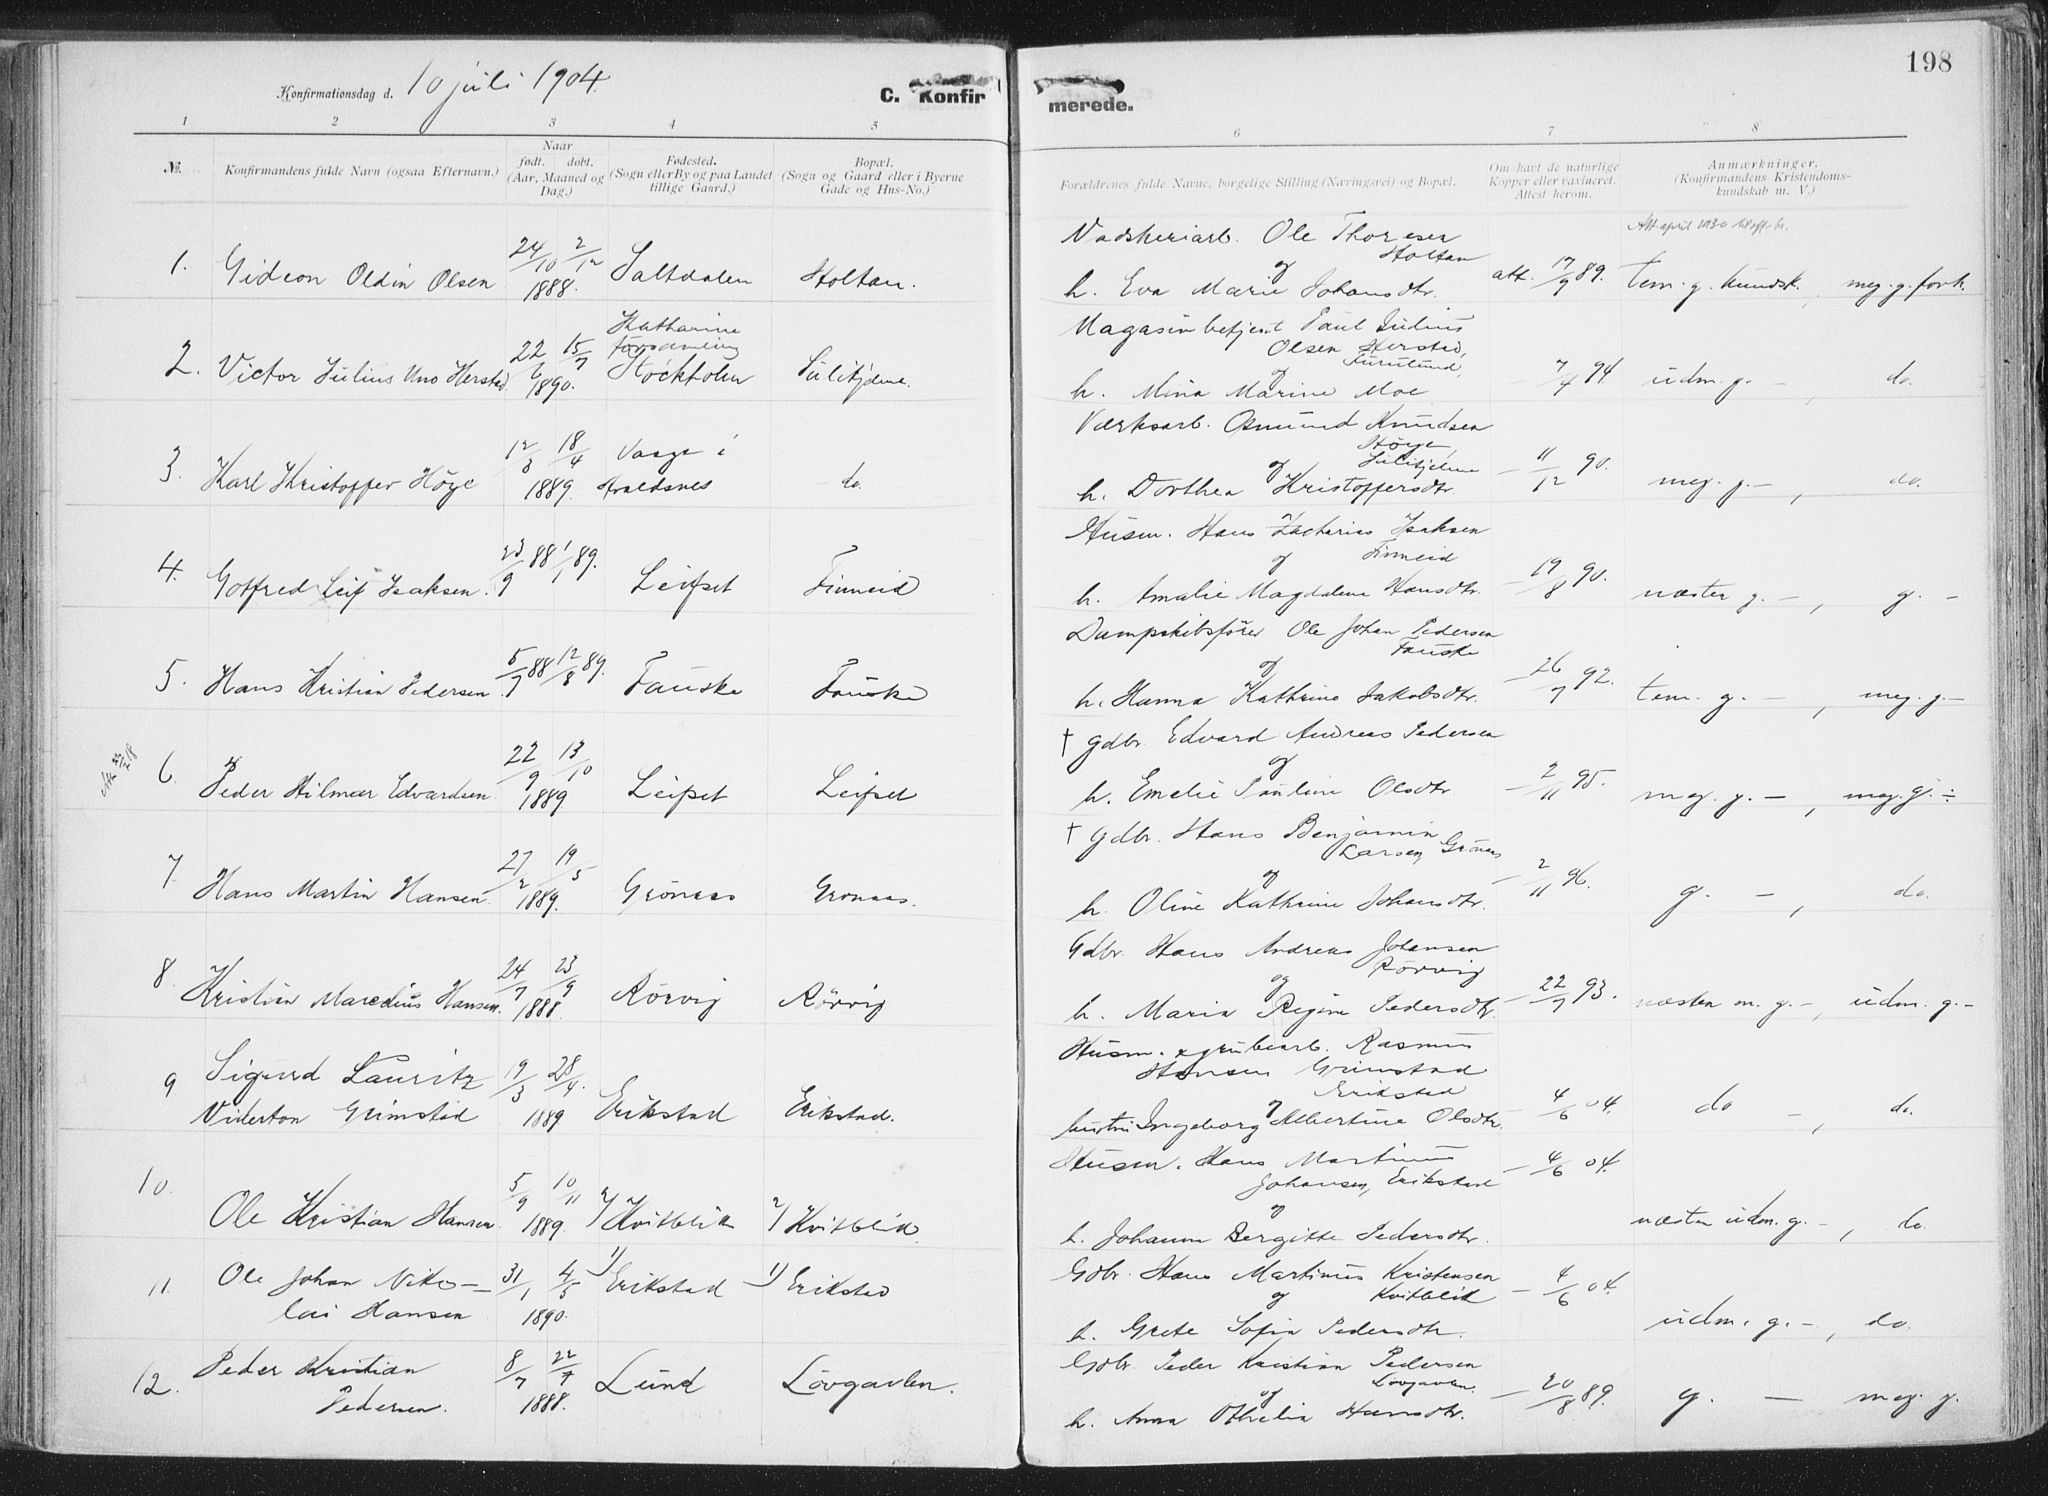 198
Konfirmationsdag d. 10 juli 1904.
C. Konfirmerede.
1 2 3 4 5 6 7 8
№ Konfirmandens fulde Navn (ogsaa Efternavn.) Naar født. døbt. (Aar, Maaned og Dag.) Fødested. (Sogn eller By og paa Landet tillige Gaard.) Bopæl. (Sogn og Gaard eller i Byerne Gade og Hus-No.) Forældrenes fulde Navne, borgelige Stilling (Næringsvei) og Bopæl. Om havt de naturlige Kopper eller vaxineret. Attest herom. Anmærkninger. (Konfirmandens Kristendomskundskab m. V.)
Att april 1930
Vadskeriarb. Ole Thoresen
Holtan
1. Gideon Oldin Olsen 24/10 2/12 1888. Saltdalen Holtan. og h. Eva Marie Johansdtr. att. 17/9 89. tem. g. kundsk., meg. g. forh.
Magasinbetjent Paul Julius
Olsen Herstad,
Furulund,
2. Victor Julius Uno Herstad 22/2 15/7 1890. Katharina församling Stockholm Sulitjelma. og h. Mina Marine Moe — 7/4 94. udm. g. —, do.
Værksarb. Osmund Knudsen
Høye,
Sulitjelma
3. Karl Kristoffer Höye 12/3 18/4 1889. Vaage i Avaldsnes do. og h. Dorthea Kristoffersdtr. — 11/12 90. meg. g. —, do.
Husm. Hans Zacharias Isaksen
Finneid
4. Gotfred Leif Isaksen. 23/9 88 1/1 89. Leifset Finneid og h. Amalie Magdalene Hansdtr. — 19/8 90. næsten g. —, g. —
Dampskibsfører Ole Johan Pedersen
Fauske
5. Hans Kristian Pedersen 5/7 88 12/8 89. Fauske Fauske og h. Hanna Kathrine Jakobsdtr. — 26/7 92. tem. g. —, meg. g. —
† Gdbr. Edvard Andreas Pedersen
6. Peder Hilmar Edvardsen. 22/9 13/10 1889 Leifset Leifset og h. Emelie Pauline Olsdtr. — 2/11 95. meg. g. —, meg. g. ÷
† Gdbr. Hans Benjamin
Larsen, Grönaas
7. Hans Martin Hansen. 27/2 19/5 1889. Grönaas Grönaas. og h. Oline Kathrine Johansdtr. — 2/11 96. g. —, do.
Gdbr. Hans Andreas Johansen
Rörvig
8. Kristian Maredius Hansen. 24/7 23/9 1888. Rörvig Rörvig og h. Maria Regine Pedersdtr. — 22/7 93. næsten m. g. —, udm. g. —
Husm. & grubearb. Rasmus
Hansen Grimstad
Erikstad
9 Sigurd Lauritz Viderton Grimstad 19/3 28/4. 1889 Erikstad Erikstad. og hustru Ingeborg Albertine Olsdtr. — 4/6 04. do —, do.
Husm. Hans Martinus
Johansen, Erikstad
10. Ole Kristian Hansen 5/9 10/11 1889. 2/ Kvitblik 2/ Kvitblik. og h. Johanna Bergitte Pedersdtr. — 4/6 04. næsten udm. g. —, do.
Gdbr. Hans Martinus Kristensen
Kvitblik
11. Ole Johan Nikolai Hansen 31/1 4/5 1890. 1) Erikstad 1) Erikstad og h. Grete Sofia Pedersdtr. — 4/6 04. udm. g. —, do.
Gdbr. Peder Kristian Pedersen
Lövgavlen.
12. Peder Kristian Pedersen. 8/7 22/7 1888. Lund Lövgavlen. og h. Anna Othelia Hansdtr. — 20/8 89. g. — meg. g.